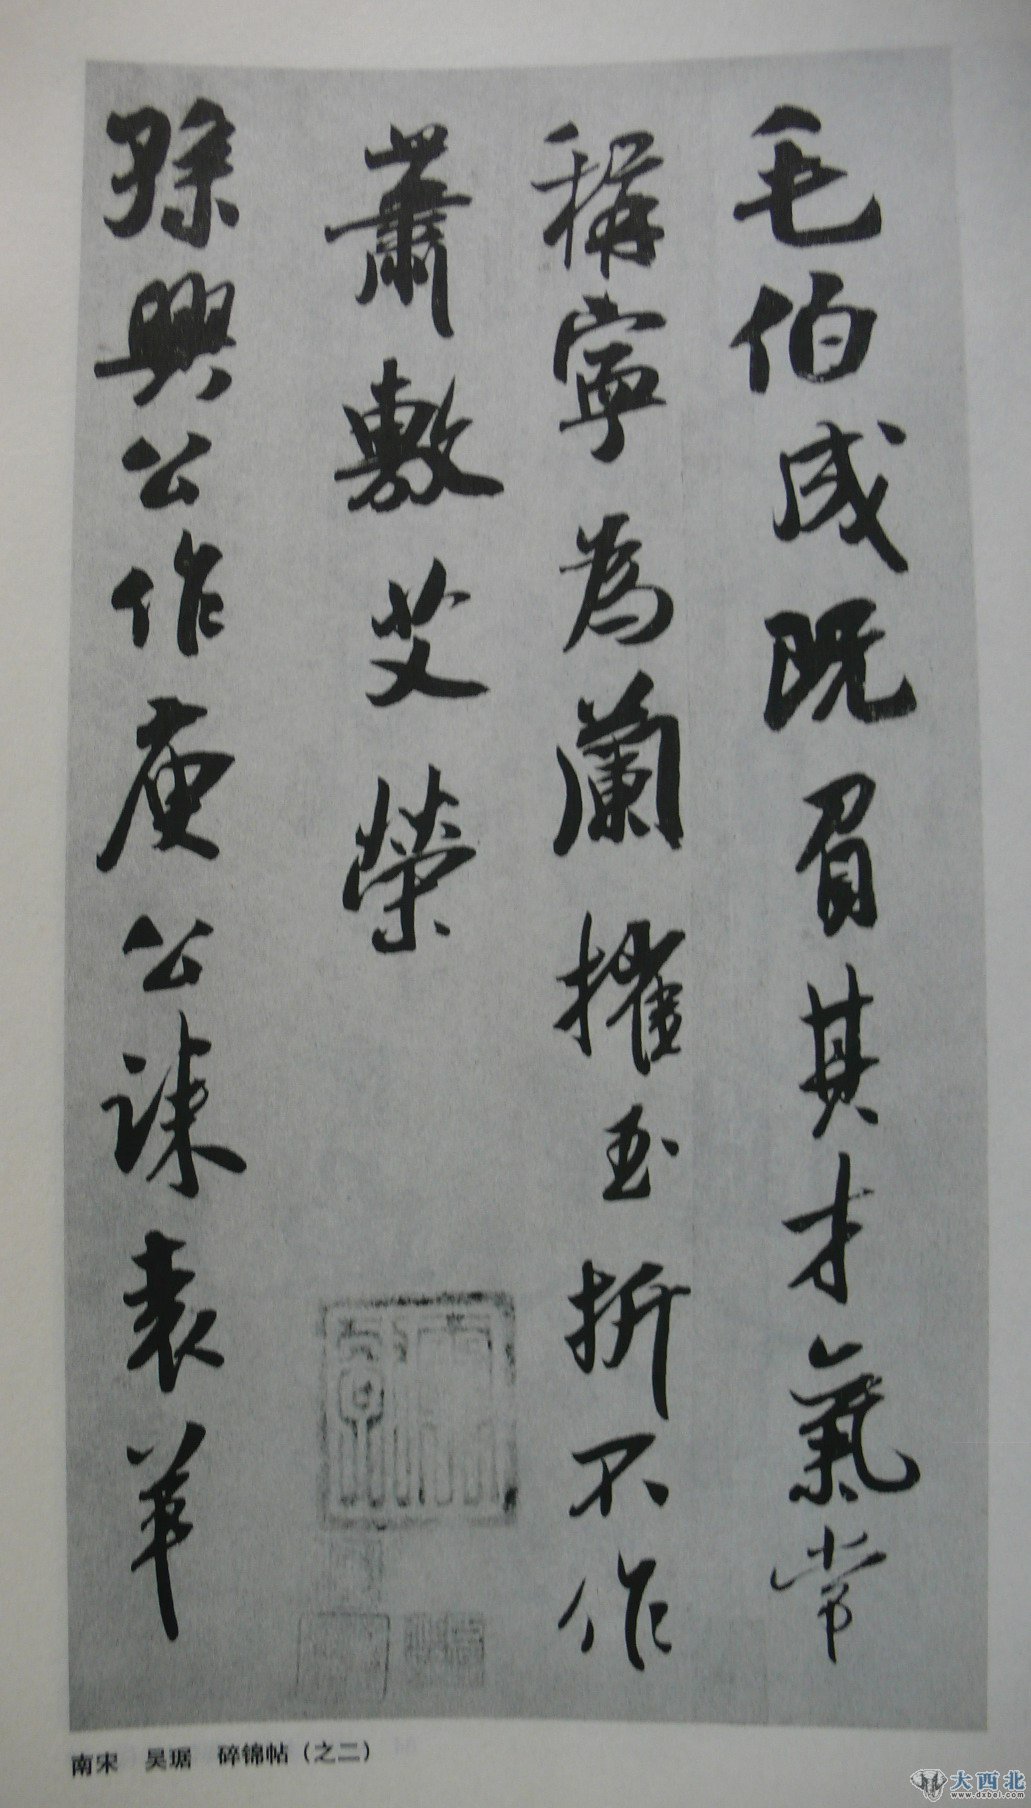 毛伯成既負其才氣常
稱寧為蘭摧玉折不作
蕭敷艾榮
孫興公作庾公誄袁羊
南宋 吴琚 碎锦帖（之二）
大西北
www.dxbei.com